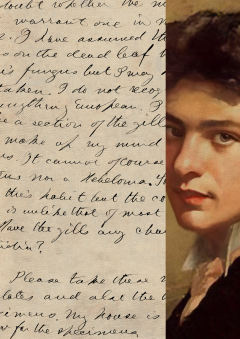 doubt whether the m
warrant one in
. I have assumed th
s on the dead leaf
s fungus but I may
taken. I do not recog
anything European. I
e a section of the gills
make up my mind
s. It cannot of course
us nor a
this habit but the co
is unlike that of most
Have the gills any cha

Please take these
lates and also the
pecimens. My house is
for the specimens